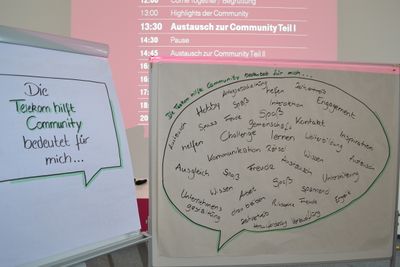 12:00 Come Together / Begrüßung
13:00 Highlights der Community
13:30 Austausch zur Community Teil I
14:30 Pause
14:45 Austausch zur Community Teil II
Die
Telekom hilft
Community
bedeutet für
mich...
Die Telekom hilft Community bedeutet für mich...
Austausch
Hobby
Spaß
helfen
Interaktion
Engagement
Spass
Freude
Spaß
Gemeinschaft
Kontakt
Inspiration
helfen
Challenge
lernen
Weiterbildung
Kommunikation
Rätsel
Wissen
Austausch
Ausgleich
Spaß
Freude
Austausch
Unterhaltung
Wissen
Spaß
spannend
Unternehmens
gestaltung
dran bleiben
Freude
Zeitvertreib